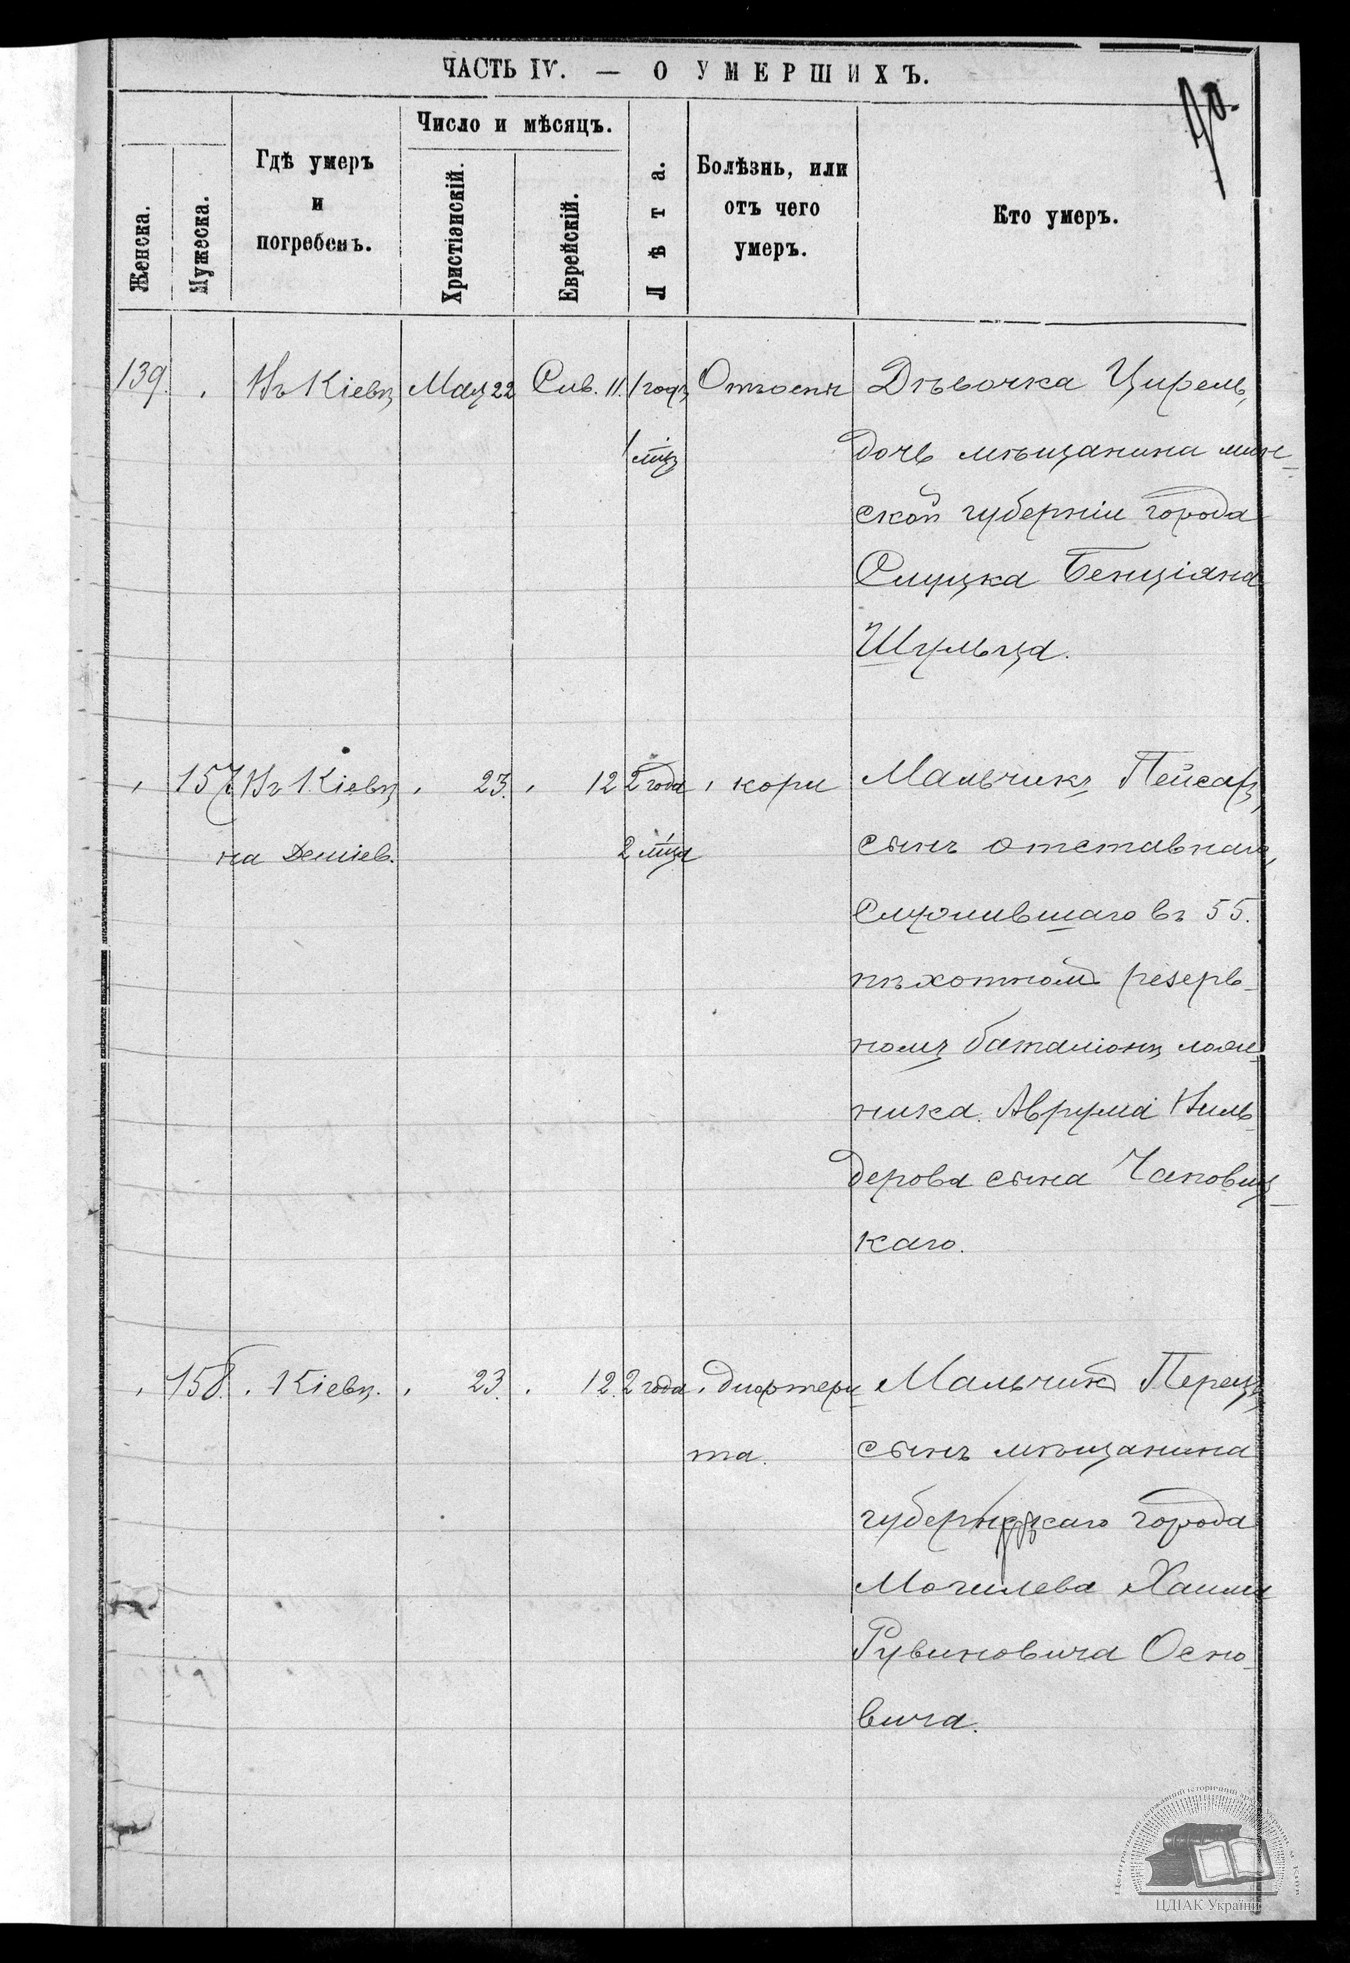 ЧАСТЬ IV. — О УМЕРШИХЪ.
90.
Женска.
Мужеска.
Гдѣ умеръ
и
погребенъ.
Число и мѣсяцъ.
Христіэнскій.
Еврейскій.
Лѣта.
Болѣзнь, или
отъ чего
умеръ.
Кто умеръ.
139. Въ Кіевѣ Мая 22 Сив. 11. 1 годъ Отъ оспы Дѣвочка Цирель,
1 мѣц дочь мѣщанина мин-
ской губерніи города
Слуцка Бенціяна
Шульца.
157 Въ Кіевѣ 23. 12 2 года кори Мальчикъ Пейсахъ,
на Деміев. 2 мѣца сынъ отставнаго,
служившаго въ 55.
пѣхотномъ резерв-
номъ баталіонѣ лож-
ника Аврума
дерова сына Чаповец-
каго.
158. Кіевѣ. 23. 12. 2 года дифтери- Мальчикъ Перецъ
та. сынъ мѣщанина
города
Могилева Хаима
Рувиновича Осно-
вича.
ЦДІАК України